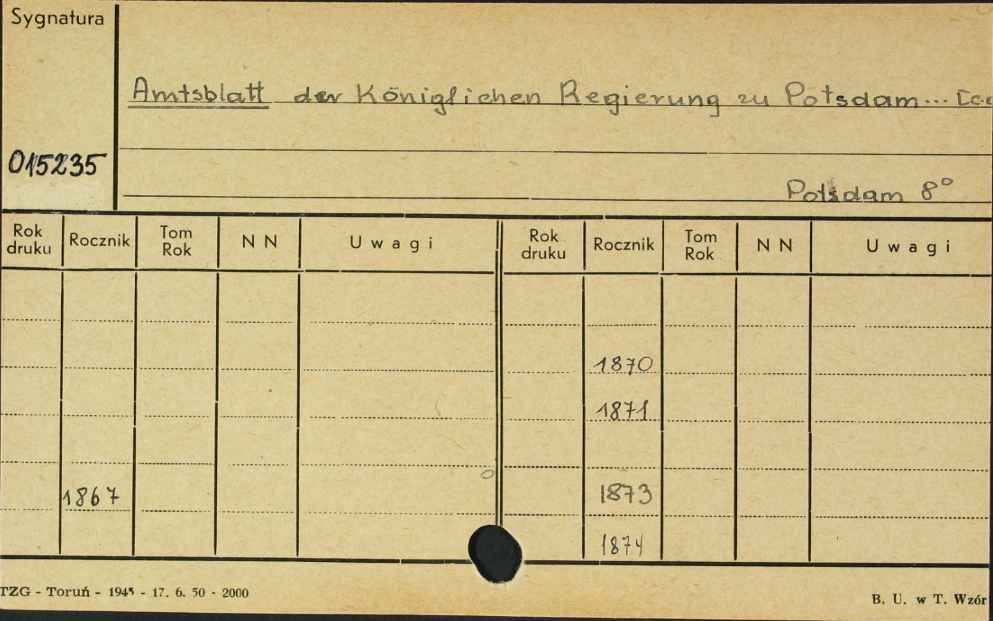 Sygnatura
Amtsblatt der Königlichen Regierung zu Potsdam...
015235
Potsdam 8°
Rok druku Rocznik Tom Rok N N Uwagi Rok druku Rocznik Tom Rok N N Uwagi
1870
1871
1867 1873
1874
TZG - Toruń - 1945 - 17. 6. 50 - 2000
B. U. w T. Wzór